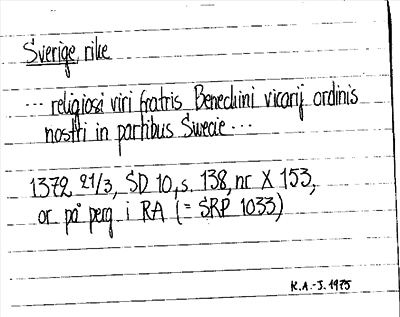 Sverige, rike
... religiosi viri fratris Benechini vicarij ordinis
nostri in partibus Swecie ...
1372 21/3, SD 10, s. 138, nr X 153,
or på perg i RA (= SRP 1033)
K.A.-J. 1975